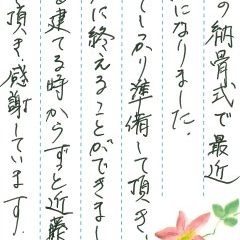 の納骨式で最近
になりました。
てしっかり準備して頂き
に終えることができまし
建てる時からずっと近藤
頂き感謝しています。